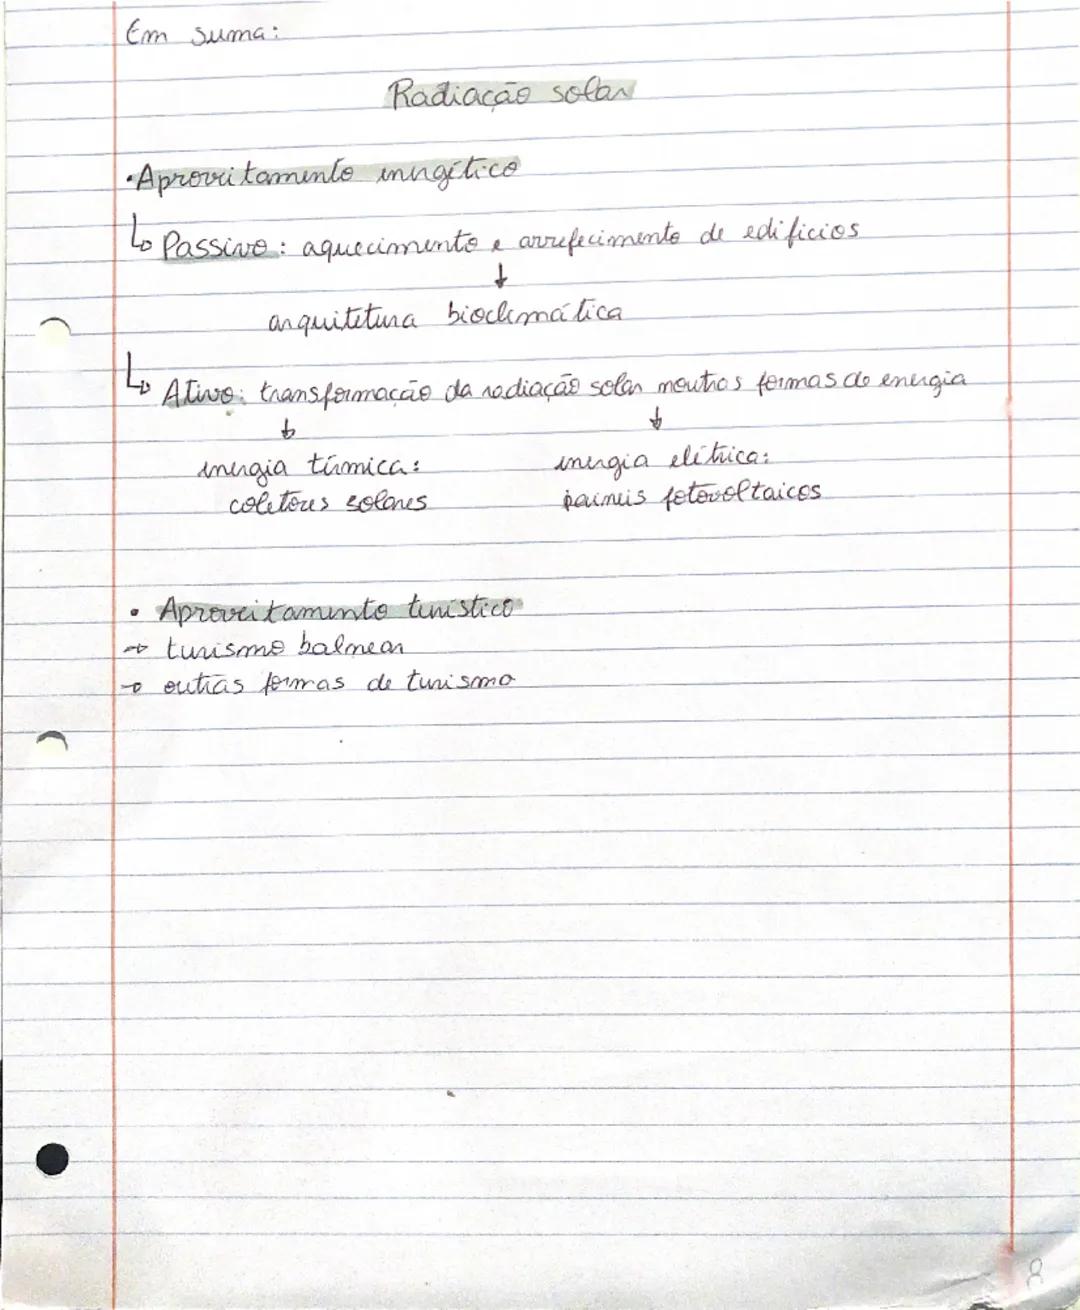 Em suma:
Radiação solar
• Aproveitamento energético
↳ Passivo: aquecimento e arrefecimento de edificios
↓
arquitetura bioclimática
↳ Ativo: transformação da radiação solar noutras formas de energia
↓ ↓
energia térmica: energia elétrica:
coletores solares paineis fotovoltaicos
• Aproveitamento turistico
→ turismo balnear
→ outras formas de turismo
8